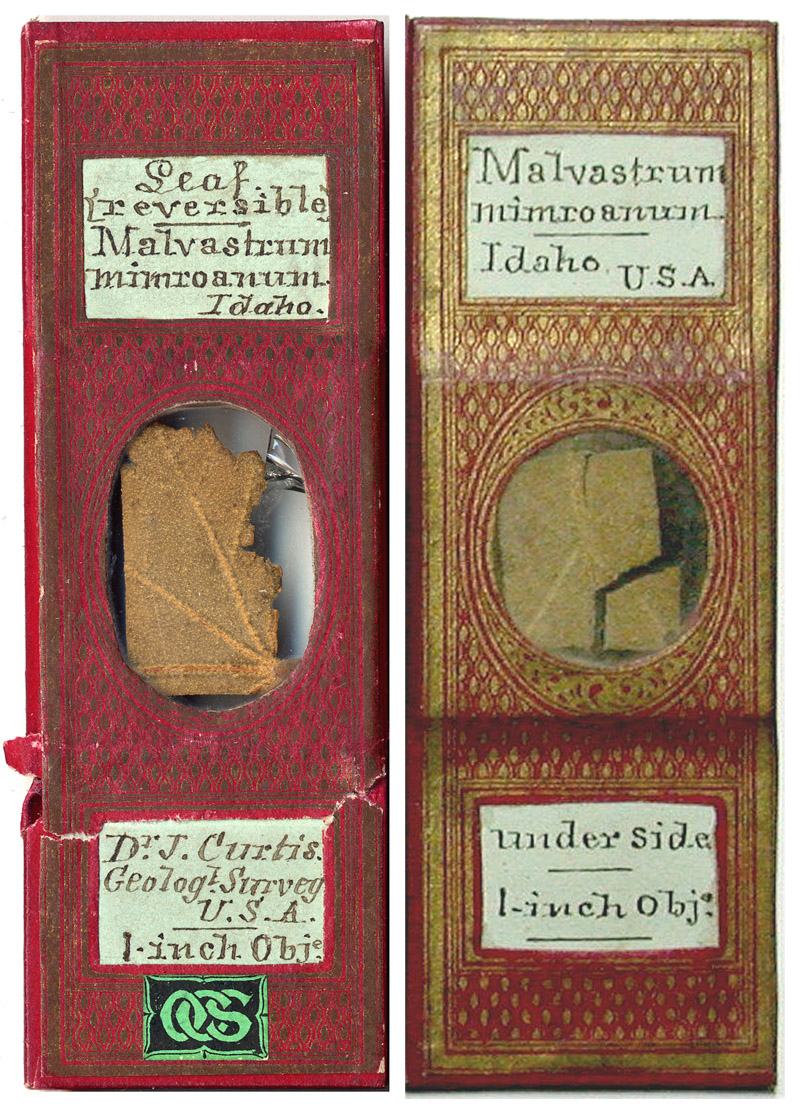 Leaf
(reversible)
Malvastrum
mimroanum.
Idaho.
Dr. J. Curtis.
Geologl. Survey
U.S.A.
1-inch Obje.
Malvastrum
mimroanum.
Idaho. U.S.A.
under side
1-inch Obje.